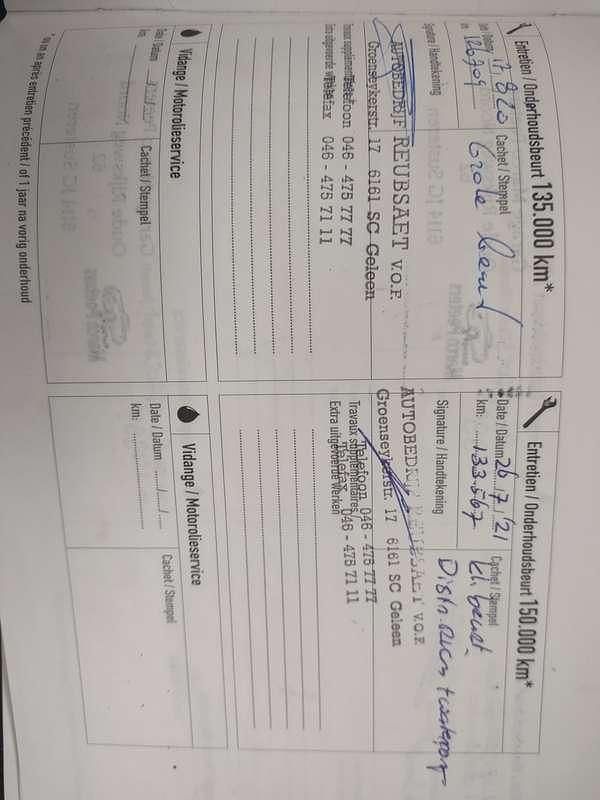 Entretien / Onderhoudsbeurt 135.000 km*
Date / Datum 17.8.20
km: 126709
Cachet / Stempel
Grote beurt
Signature / Handtekening
AUTOBEDRIJF REUBSAET V.O.F.
Groenseykerstr. 17 6161 SC Geleen
Telefoon 046 - 475 77 77
Telefax 046 - 475 71 11
Vidange / Motorolieservice
Date / Datum
km:
Cachet / Stempel
* ou un an après entretien précédent / of 1 jaar na vorig onderhoud
Entretien / Onderhoudsbeurt 150.000 km*
Date / Datum 26.7.'21
km: 133.567
Cachet / Stempel
kl. beurt
Distr. riem + waterpomp
Signature / Handtekening
AUTOBEDRIJF REUBSAET V.O.F.
Groenseykerstr. 17 6161 SC Geleen
Telefoon 046 - 475 77 77
Travaux supplémentaires /
Telefax 046 - 475 71 11
Extra uitgevoerde werken
Vidange / Motorolieservice
Date / Datum ..../..../....
km:
Cachet / Stempel